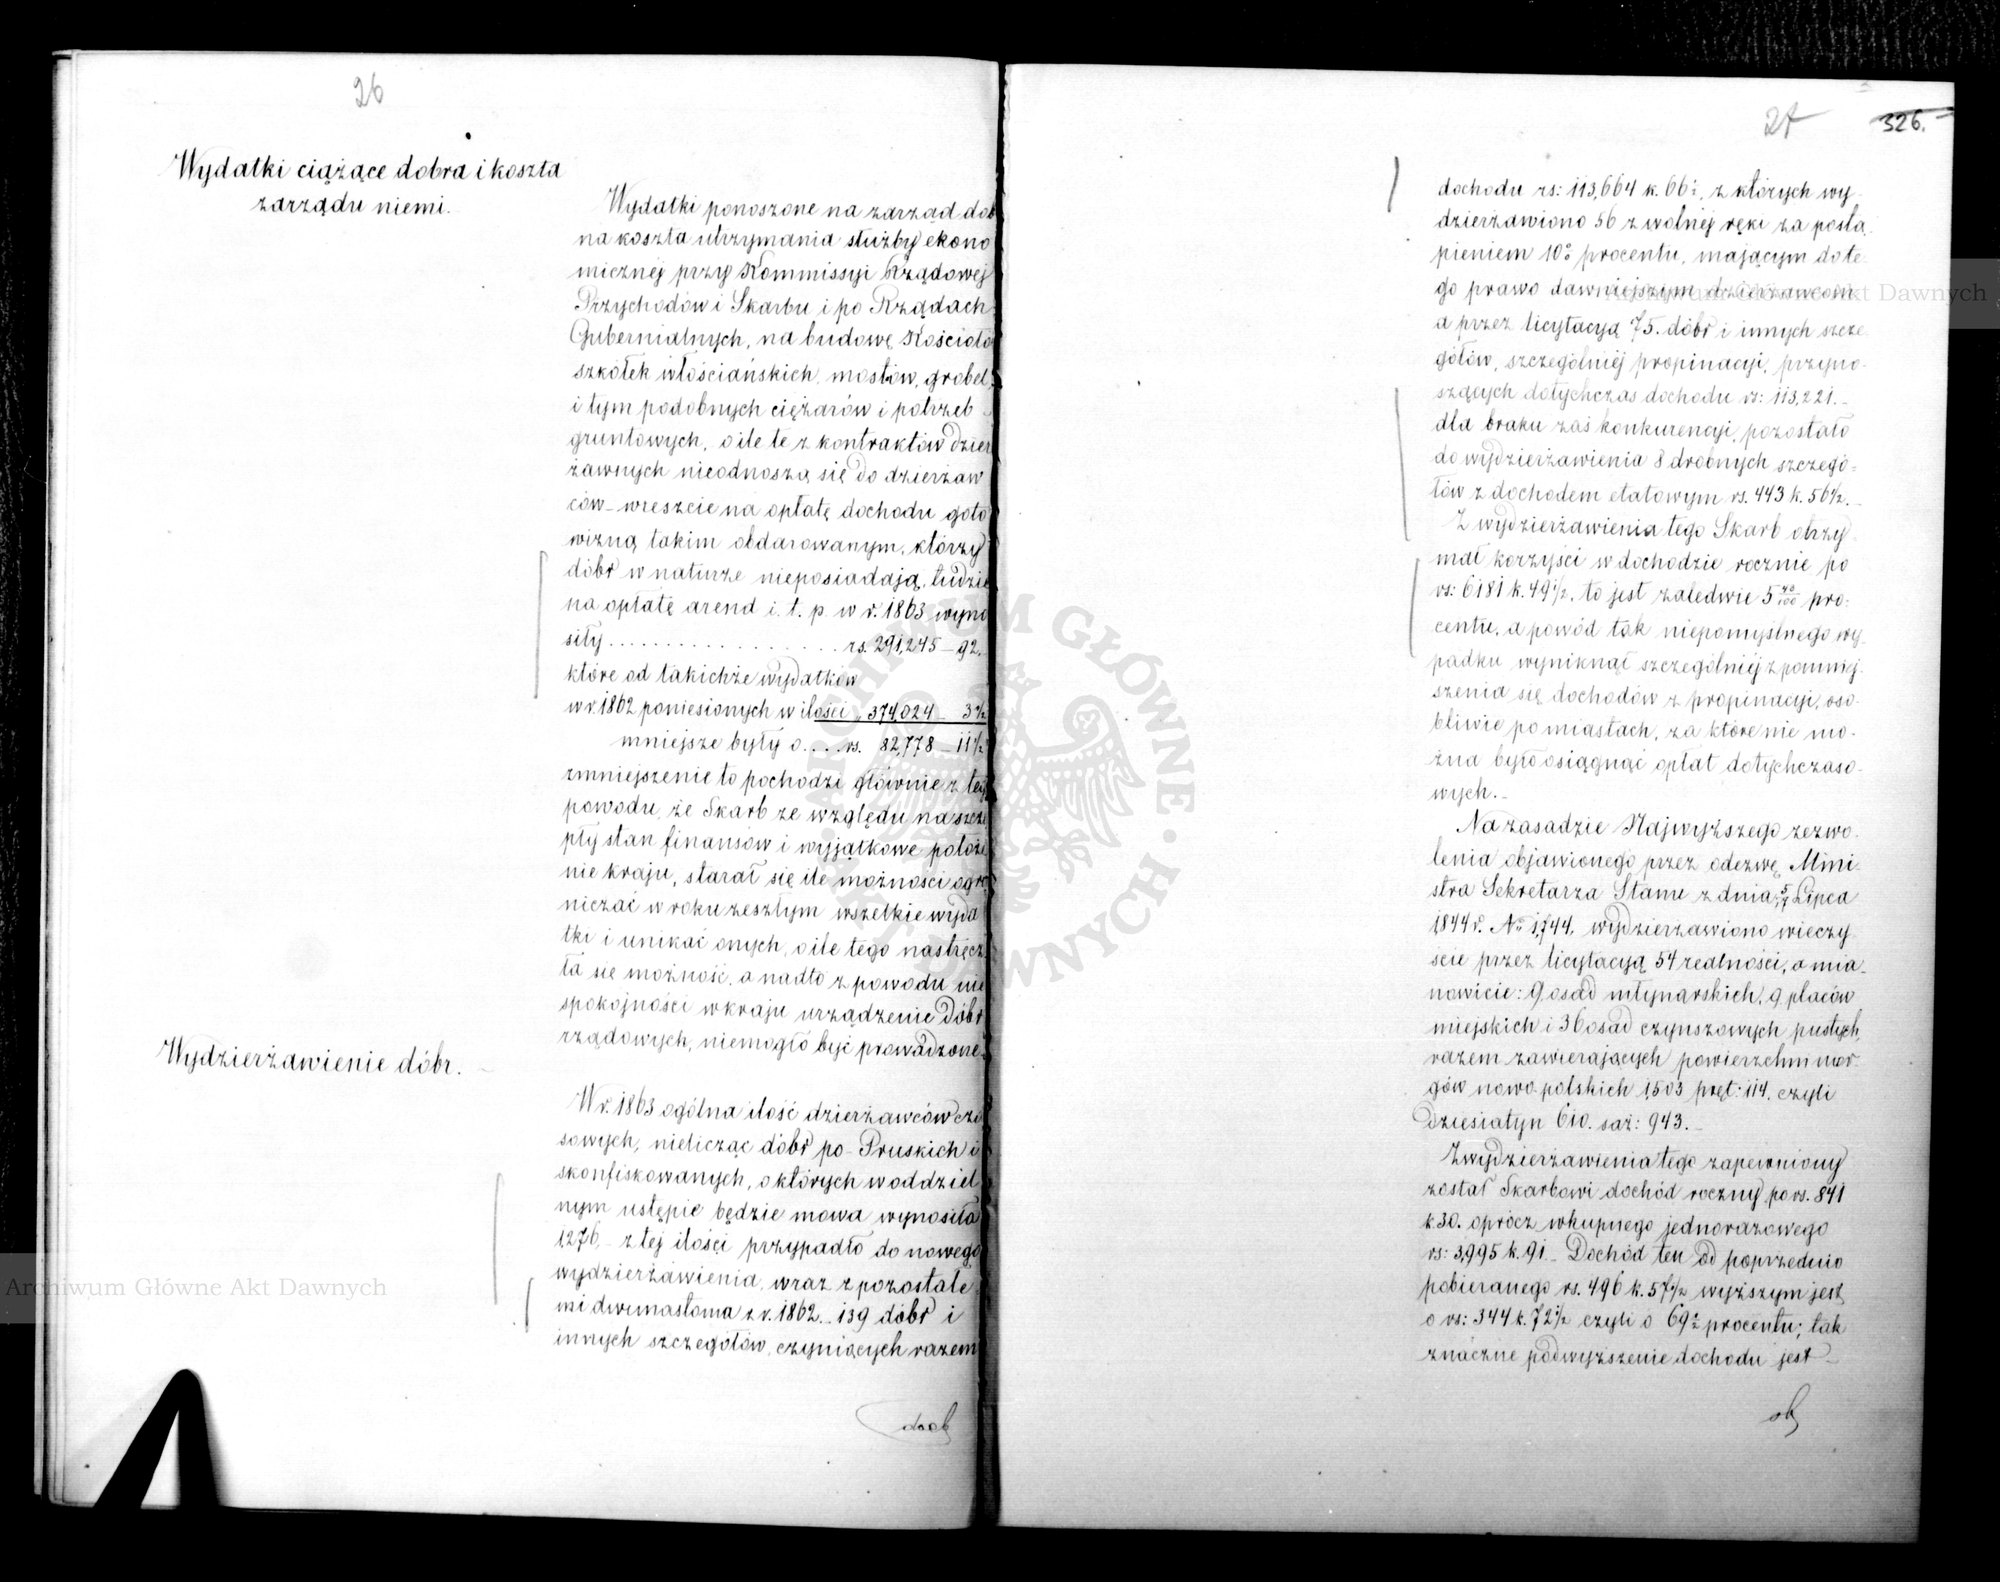 26
Wydatki ciążące dobra i koszta
zarządu niemi.
Wydatki ponoszone na zarząd dob
na koszta utrzymania służby ekono
micznéj przy Kommissyi Rządowéj
Przychodów i Skarbu i po Rządach
Gubernialnych, na budowę Kościoło
szkółek włościańskich, mostów, grobel,
i tym podobnych ciężarów i potrzeb
gruntowych, o ile te z kontraktów dzier
żawnych nieodnoszą się do dzierżaw
ców – wreszcie na opłatę dochodu goto
wizną takim obdarowanym, którzy
dóbr w naturze nieposiadają, tudzie
na opłatę arend i. t. p. w r. 1863 wyno
siły . . . . . . . . . . . . . . . . . rs. 291,245 – 92.
które od takichże wydatków
w r. 1862 poniesionych w ilości „ 374,024 – 3½
mniejsze były o . . . . rs. 82,778 – 11½
zmniejszenie to pochodzi głównie z tej
powodu, że Skarb ze względu na szczu
pły stan finansów i wyjątkowe położe
nie kraju, starał się ile możności ogra
niczać w roku zeszłym wszelkie wyda
tki i unikać onych, o ile tego nastręcz
ła się możność, a nadto z powodu nie
spokojności w kraju urządzenie dóbr
rządowych, niemogło być prowadzone.
Wydzierżawienie dóbr.
W r. 1863 ogólna ilość dzierżawców cza
sowych, nielicząc dóbr po-Pruskich i
skonfiskowanych, o których w oddziel
nym ustępie będzie mowa wynosiła
1,276, – z tej ilości przypadło do nowego
wydzierżawienia, wraz z pozostałe
mi dwunastoma z r. 1862. – 139 dóbr i
innych szczegółów, czyniących razem
doch
27
326.
dochodu rs: 113,664 k. 66½, z których wy
dzierżawiono 56 z wolnéj ręki za postą
pieniem 10% procentu, mającym do te
go prawo dawniejszym dzierżawcom
a przez licytacyą 75. dóbr i innych szcze
gółów, szczególniéj propinacyi, przyno-
szących dotychczas dochodu rs: 113,221. –
dla braku zaś konkurencyi, pozostało
do wydzierżawienia 8 drobnych szczegó-
łów z dochodem etatowym rs. 443 k. 56½. –
Z wydzierżawienia tego Skarb otrzy
mał korzyści w dochodzie rocznie po
rs: 6181 k. 49½, to jest zaledwie 5 40/100 pro-
centu, a powód tak niepomyślnego wy-
padku wyniknął szczególniéj z pomniej-
szenia się dochodów z propinacyi, oso-
bliwie po miastach, za które nie mo-
żna było osiągnąć opłat dotychczaso-
wych. –
Na zasadzie Najwyższego zezwo-
lenia objawionego przez odezwę Mini
stra Sekretarza Stanu z dnia 5/17 Lipca
1844 r. No 1,744, wydzierżawiono wieczy
ście przez licytacyą 54 realności, a mia-
nowicie: 9 osad młynarskich, 9 placów
miejskich i 36 osad czynszowych pustych,
razem zawierających powierzchni mor-
gów nowo-polskich 1,503 pręt: 114. czyli
Dziesiatyn 610. saż: 943. –
Z wydzierżawienia tego zapewniony
został Skarbowi dochód roczny po rs. 841
k. 30. oprócz wkupnego jednorazowego
rs: 3,995 k. 91. – Dochód ten od poprzednio
pobieranego rs. 496 k. 57½ wyższym jest
o rs: 344 k. 72½ czyli o 69½ procentu; tak
znaczne podwyższenie dochodu jest –
ob
Archiwum Główne Akt Dawnych
Archiwum Główne Akt Dawnych
ARCHIWUM GŁÓWNE AKT DAWNYCH